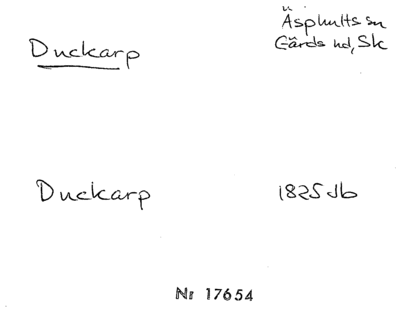 Duckarp
Äsphults sn
Gärds hd, Sk
Duckarp
1825 Jb
Nr 17654